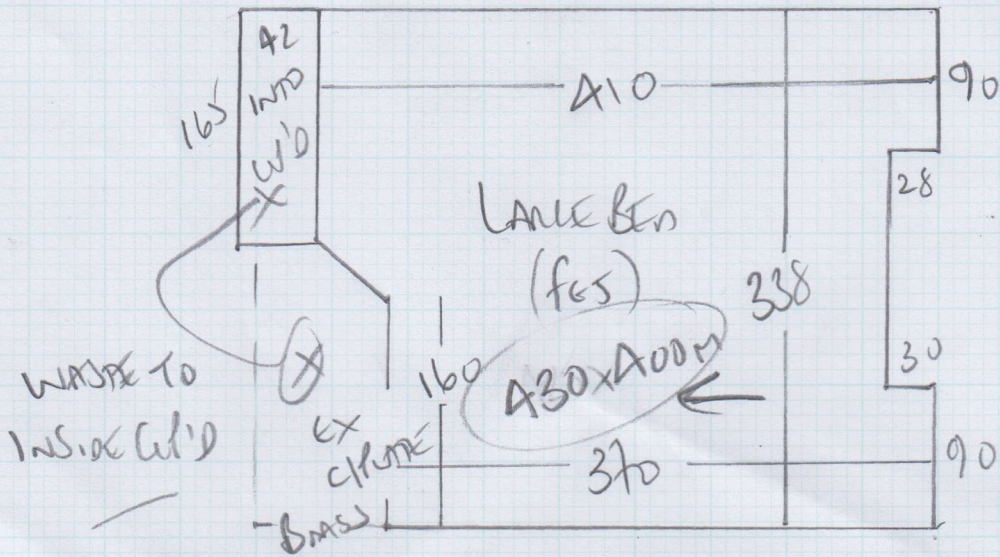 42
INTO
C/P'D
165
410
90
28
LARGE BED
(FES)
338
30
160
430x400m
WASTE TO
INSIDE C/P'D
EX
C/PLATE
370
90
BRASS